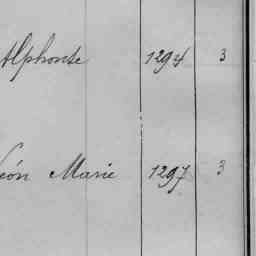 Alphonse 1294 3
Léon Marie 1297 3